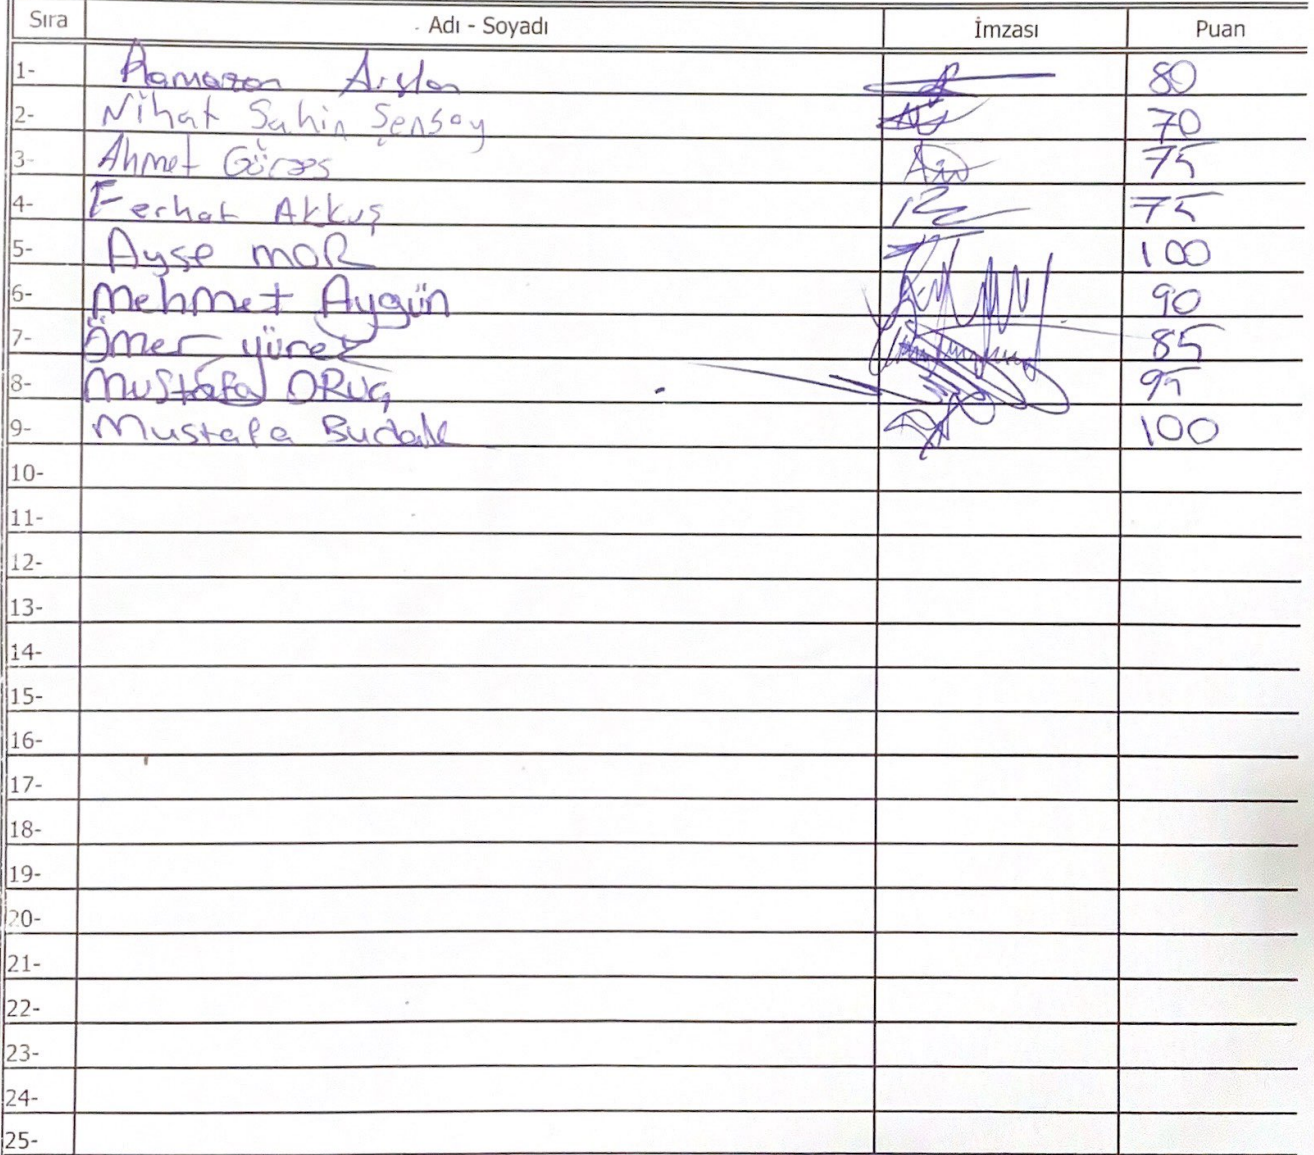 Sıra Adı - Soyadı İmzası Puan
1- Ramazan Arslan 80
2- Nihat Şahin Şensoy 70
3- Ahmet 75
4- Ferhat Akkuş 75
5- Ayşe MOR 100
6- Mehmet Aygün 90
7- Ömer yürek 85
8- Mustafa ORUÇ 95
9- Mustafa Budak 100
10-
11-
12-
13-
14-
15-
16-
17-
18-
19-
20-
21-
22-
23-
24-
25-